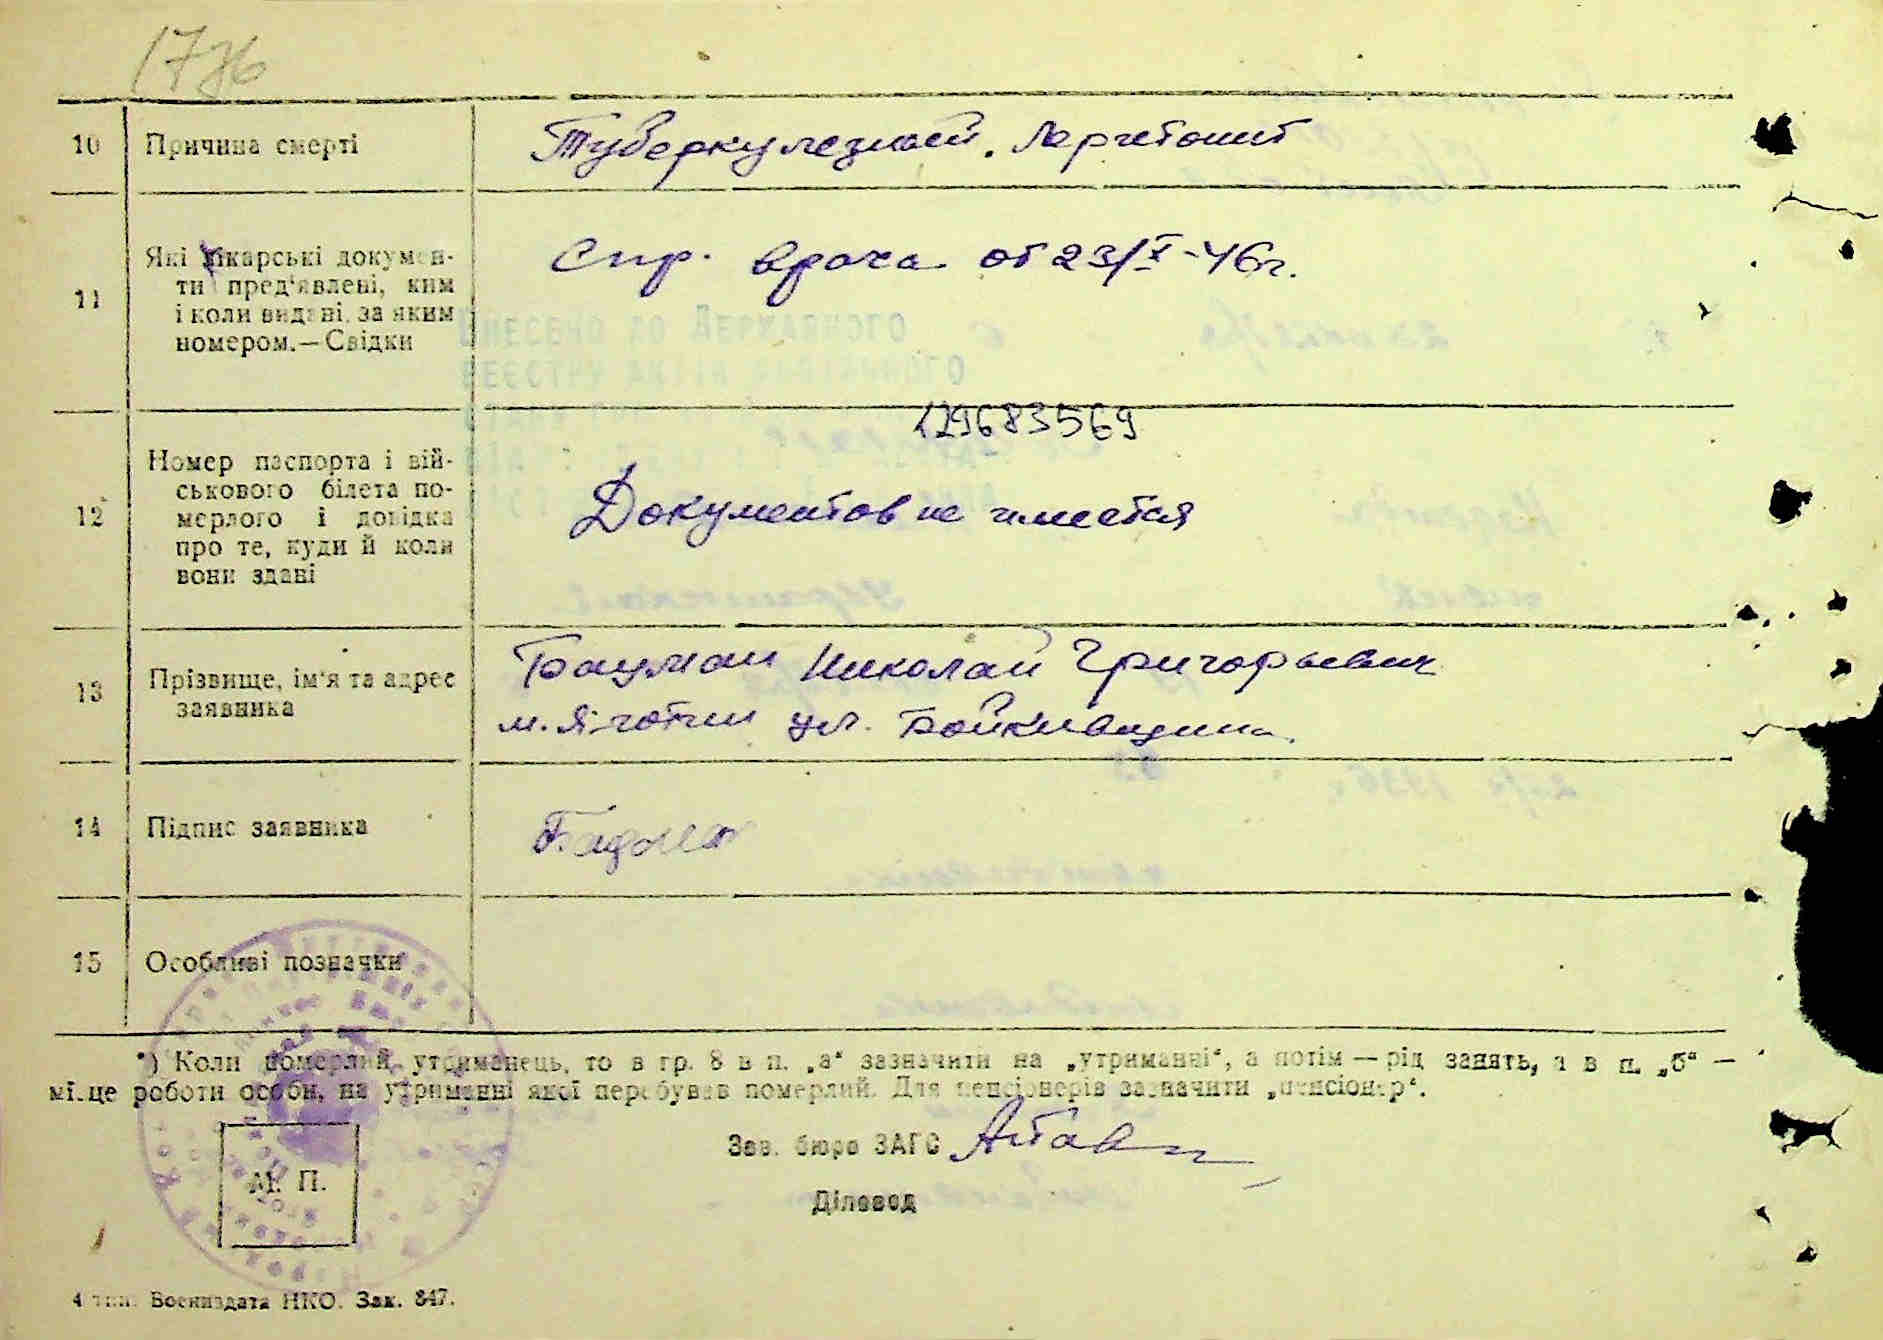 10 Причина смерті Туберкулезный.
11 Які лікарські докумен-
ти пред'явлені, ким
і коли видані, за яким
номером.—Свідки
Спр. врача от 23/X-46г.
Внесено до Державного
реєстру актів
129683569
12 Номер паспорта і вій-
ськового білета по-
мерлого і довідка
про те, куди й коли
вони здані
Документов не имеется
13 Прізвище, ім'я та адрес
заявника
Бауман Николай Григорьевич
м. Яготин ул. Бойківщина.
14 Підпис заявника
15 Особливі позначки
*) Коли померлий, утриманець, то в гр. 8 в п. „а" зазначити на „утриманні", а потім — рід занять, а в п. „б" —
місце роботи особи, на утриманні якої перебував померлий. Для пенсіонерів зазначити „пенсіонер".
Зав. бюро ЗАГС
М. П.
Діловод
4 тип. Воениздата НКО. Зак. 847.